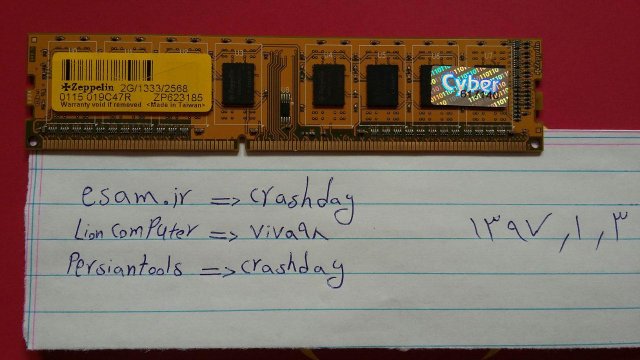 Zeppelin 2G/1333/2568
0115 019C47R ZP623185
Warranty void if removed <Made in Taiwan>
Cyber
Zeppelin
esam.ir => crashday
Lion computer => viva۹۸
۱۳۹۷,۱,۳
Persiantools => crashday